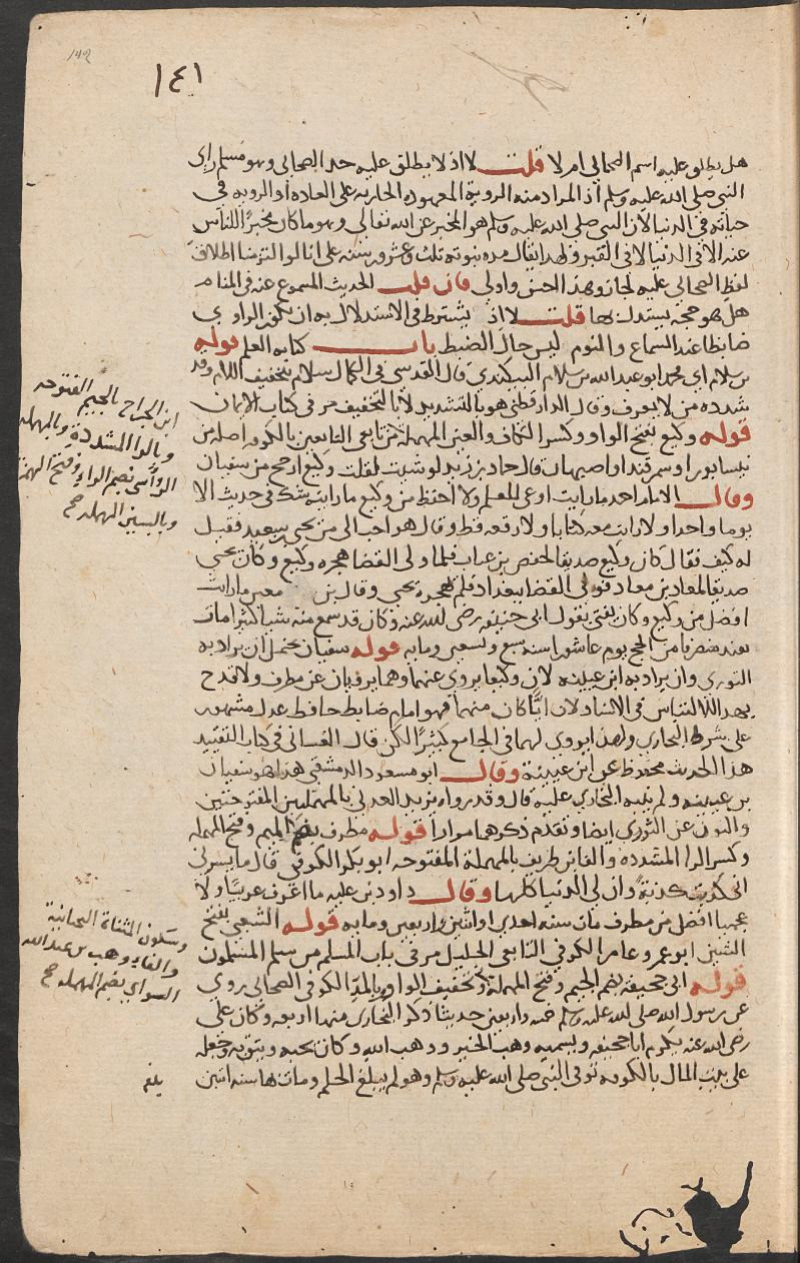 ١٤١
هل يطلق عليه اسم الصحابي ام لا قلت لا اذ لا يطلق عليه حد الصحابي وهو مسلم راى
النبي صلى الله عليه وسلم اذ المراد منه الروية المعهودة الجارية على العادة او الروية في
حياته في الدنيا لان النبي صلى الله عليه وسلم هو المخبر عن الله تعالى وهو ما كان مخبرًا للناس
عنه الا في الدنيا لا في القبر ولهذا يقال مدة نبوته ثلث وعشرون سنة على انا لو التزمنا اطلاق
لفظ الصحابي عليه لجاز وهذا احسن واولى فان قلت الحديث المسموع عنه في المنام
هل هو حجة يستدل بها قلت لا اذ يشترط في الاستدلال به ان يكون الراوي
ضابطا عند السماع والنوم ليس حال الضبط باب كتابة العلم قوله
بن سلام اي محمد ابو عبد الله بن سلام البيكندي قال المقدسي في الكمال سلام بتخفيف اللام وقد
شدده من لا يعرف وقال الدارقطني هو بالتشديد لا بالتخفيف مر في كتاب الايمان
قوله وكيع بفتح الواو وكسر الكاف والعين المهملة من تابعي التابعين بالكوفة اصله من
نيسابور او سمرقند او اصبهان قال حماد بن زيد لو شيت لقلت وكيع ارجح من سفيان
وقال الامام احمد ما رايت اوعى للعلم ولا احفظ من وكيع ما رايته شك في حديث الا
يوما واحدا ولا رايت معه كتابا ولا رقعة قط وقال هو احب الي من يحيى بن سعيد فقيل
له كيف فقال كان وكيع صديقا لحفص بن غياث فلما ولي القضا هجره وكيع وكان يحيى
صديقا لمعاذ بن معاذ فولي القضا ببغداد فلم يهجره يحيى وقال بن معين ما رايت
افضل من وكيع وكان يفتي بقول ابي حنيفة رضي الله عنه وكان قد سمع منه شيا كثيرا مات
بفيد منصرفا من الحج يوم عاشورا سنة سبع وتسعين وماية قوله سفيان يحتمل ان يراد به
الثوري وان يراد به ابن عيينة لان وكيعا يروي عنهما وهما يرويان عن مطرف ولا قدح
بهذا الالتباس في الاسناد لان ايًّا كان منهما فهو امام ضابط حافظ عدل مشهور
على شرط البخاري ولهذا يروي لهما في الجامع كثيرًا لكن قال الغساني في كتاب التقييد
هذا الحديث محفوظ عن ابن عيينة وقال ابو مسعود الدمشقي هذا هو سفيان
بن عيينة ولم ينبه البخاري عليه قال وقد رواه يزيد العدني بالمهملتين المفتوحتين
والنون عن الثوري ايضا وتقدم ذكرهما مرارا قوله مطرف بضم الميم وفتح المهملة
وكسر الرا المشددة والفا بن طريف بالمهملة المفتوحة ابو بكر الكوفي قال ما يسرني
اني كذبت كذبة وان لي الدنيا كلها وقال داود بن علية ما اعرف عربيا ولا
عجميا افضل من مطرف مات سنة احدى او اثنين واربعين وماية قوله الشعبي بفتح
الشين ابو عمرو عامر الكوفي التابعي الجليل مر في باب المسلم من سلم المسلمون
قوله ابي جحيفة بضم الجيم وفتح المهملة وتخفيف الواو وبالمد الكوفي الصحابي روي
عن رسول الله صلى الله عليه وسلم خمسة واربعين حديثا ذكر البخاري منها اربعة وكان علي
رضي الله عنه يكرم ابا جحيفة ويسميه وهب الخير ووهب الله وكان يحبه ويثق به وجعله
على بيت المال بالكوفة توفي النبي صلى الله عليه وسلم وهو لم يبلغ الحلم ومات بها سنة اثنين
ابن الجراح بالجيم المفتوحه
وبالرا المشددة وبالمهمله
الرؤاسي بضم الراء وفتح الهمزة
وبالسين المهمله صح
وسكون المثناة التحتانية
والفاء وهب بن عبد الله
السواي بضم المهمله صح
بلغ